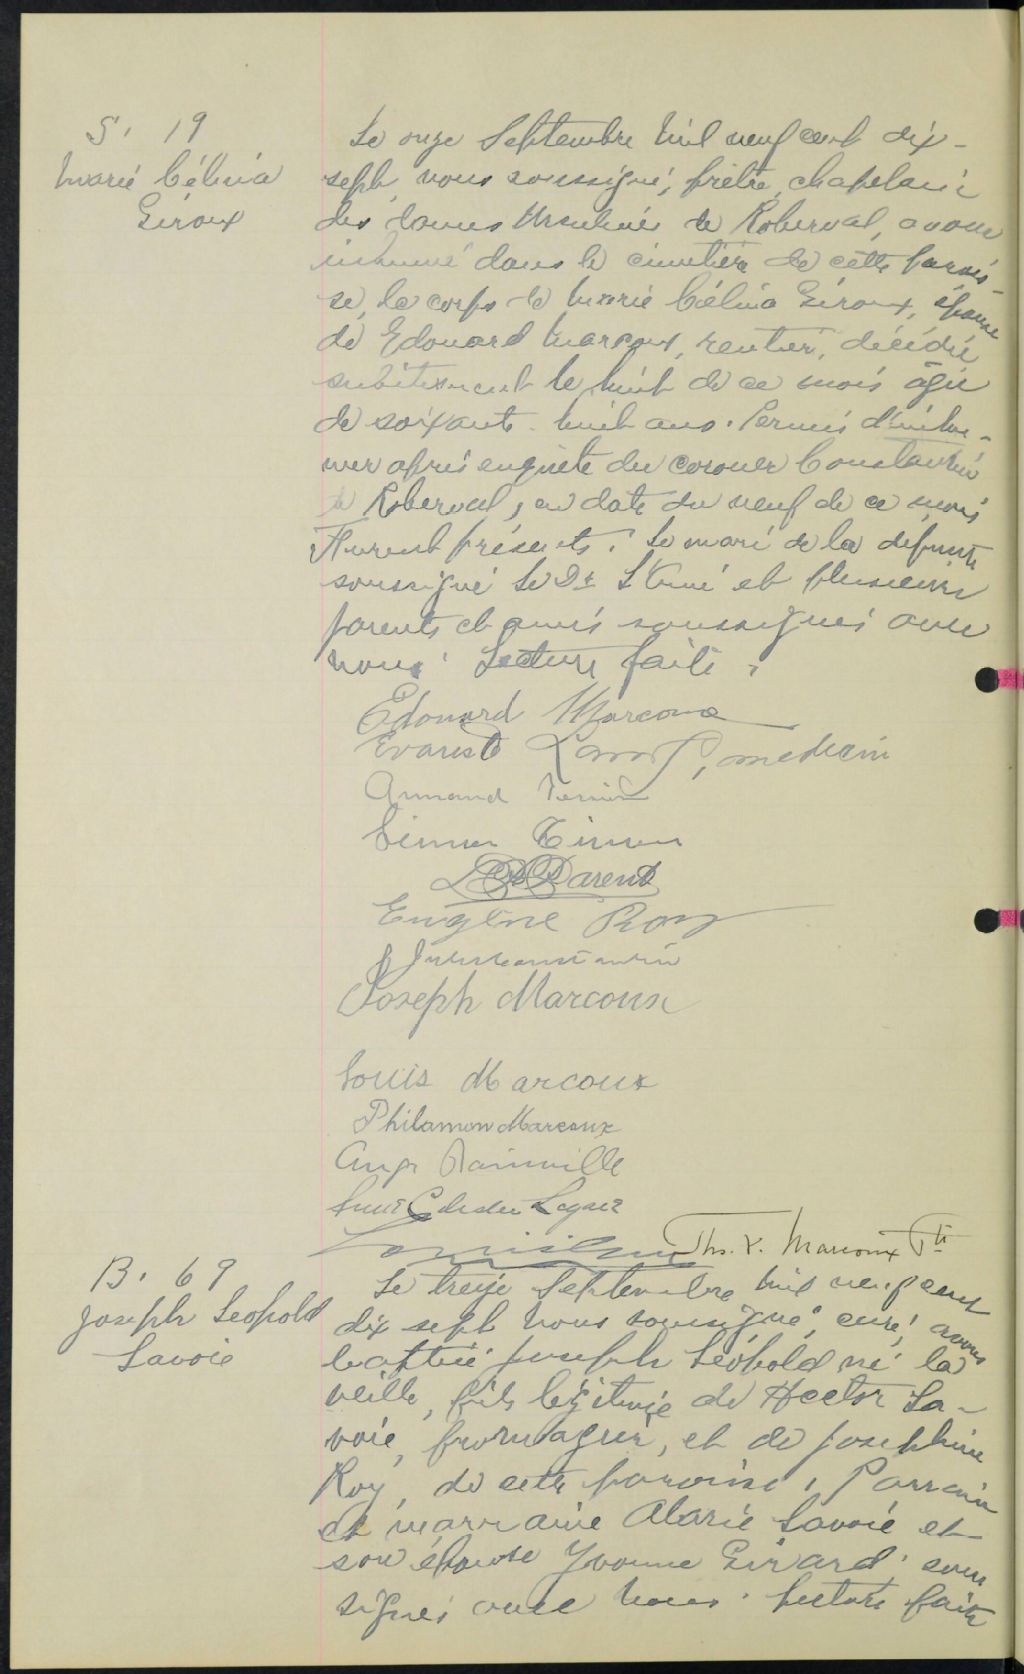 S. 19
Marie Célina
Giroux
Le onze Septembre mil neuf cent dix-
sept, nous soussigné, prêtre, chapelain
des Dames Ursulines de Roberval, avons
inhumé dans le cimetière de cette parois-
se, le corps de Marie Célina Giroux, épouse
de Edouard Marcoux, rentier, décédée
subitement le huit de ce mois âgée
de soixante-huit ans. Permis d'inhu-
mer après enquête du coroner Constantin
de Roberval, en date du neuf de ce mois
Furent présents: le mari de la défunte
soussigné le Dr et plusieurs
parents et amis soussignés avec
nous. Lecture faite.
Edouard Marcoux
Evariste, médecin
Armand
Simon
Parent
Eugène Roy
J Jules Constantin
Joseph Marcoux
Louis Marcoux
Philamon Marcoux
Rainville
Ths. V. Marcoux Ptre
B. 69
Joseph Leopold
Savoie
Le treize Septembre mil neuf cent
dix sept nous soussigné, curé, avons
baptisé Joseph Léopold né la
veille, fils légitime de Hector Sa-
voie, fromager, et de Josephine
Roy, de cette paroisse. Parrain
et marraine Alarie Savoie et
son épouse Yvonne Girard sous
signés avec nous. Lecture faite